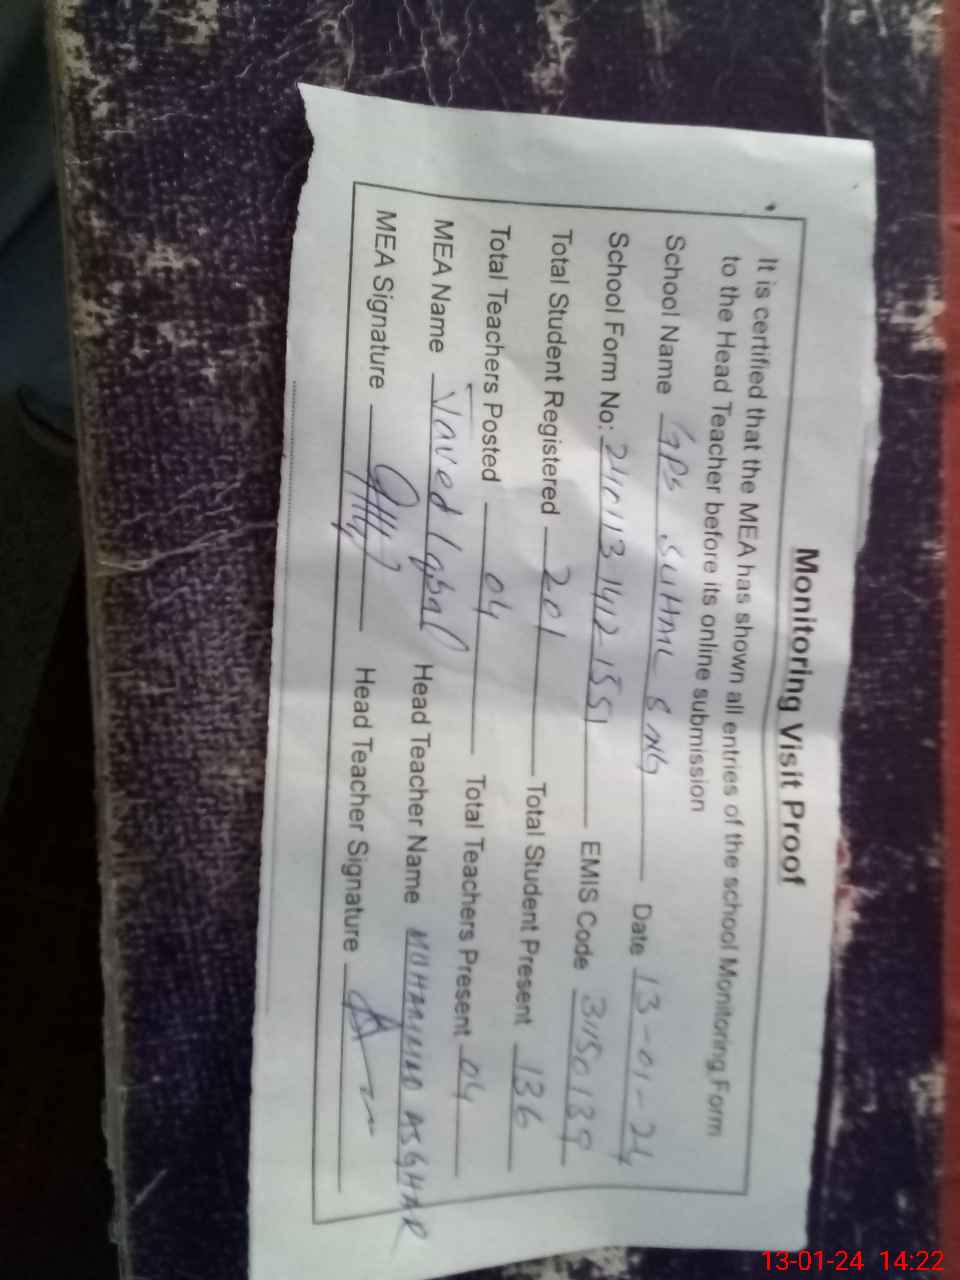 Monitoring Visit Proof
It is certified that the MEA has shown all entries of the school Monitoring Form
to the Head Teacher before its online submission
School Name GPS SUHAIL Date 13-01-24
School Form No: EMIS Code
Total Student Registered 201 Total Student Present 136
Total Teachers Posted 04 Total Teachers Present 04
MEA Name Javed Iqbal Head Teacher Name MUHAMMAD ASGHAR
MEA Signature Head Teacher Signature
13-01-24 14:22